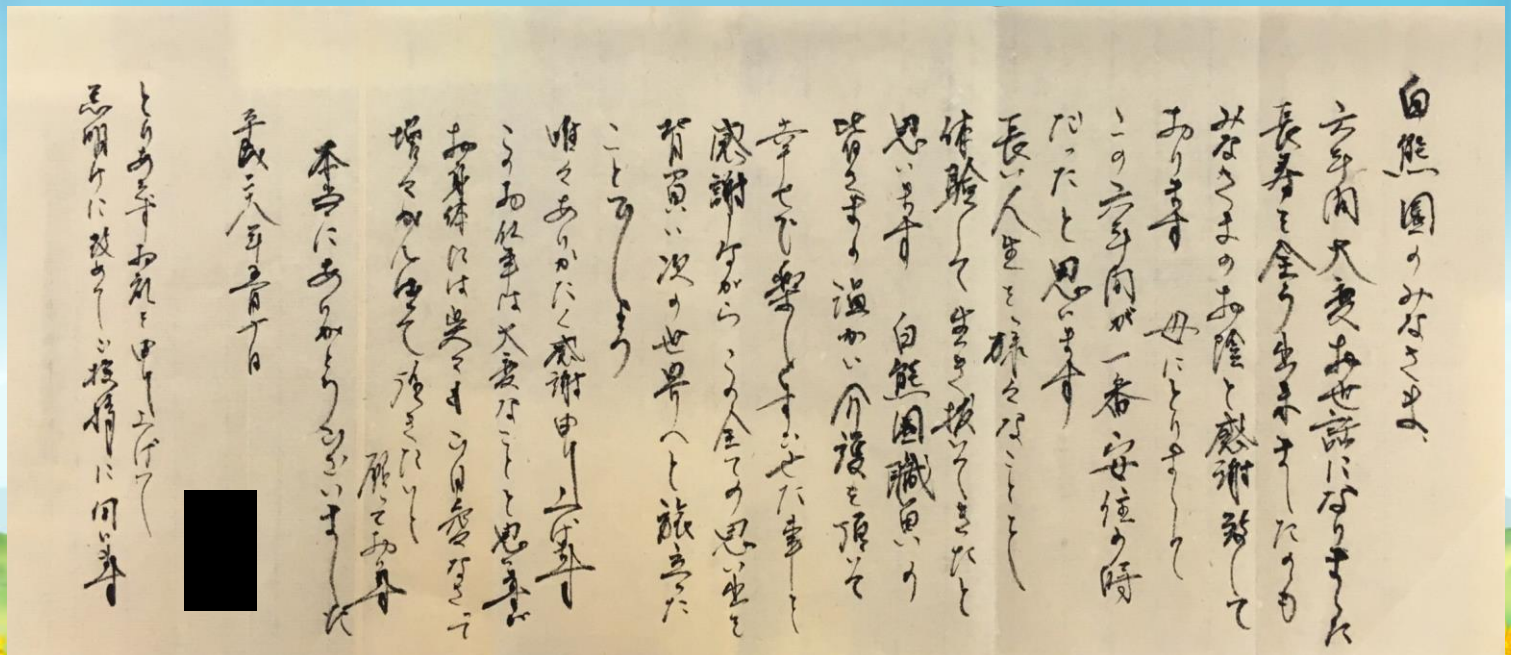 白熊園のみなさま、
六年間大変お世話になりました
長寿を全う出来ましたのも
みなさまのお陰と感謝致して
おります 母にとりまして
この六年間が一番安住の時
だったと思います
長い人生を様々なことをし
体験して生き抜いてきたと
思います 白熊園職員の
皆さまの温かい介護を頂いて
幸せで楽しくすごせた事と
感謝しながらこの全ての思い出を
背負い次の世界へと旅立った
ことでしょう
唯々ありがたく感謝申し上げます
このお仕事は大変なことと思いますが
お身体には呉々もご自愛なさって
増々がんばって頂きたいと
願っております
本当にありがとうございました
平成二八年五月十日
とりあえずお礼を申し上げて
忌明けに改めてご挨拶に伺います